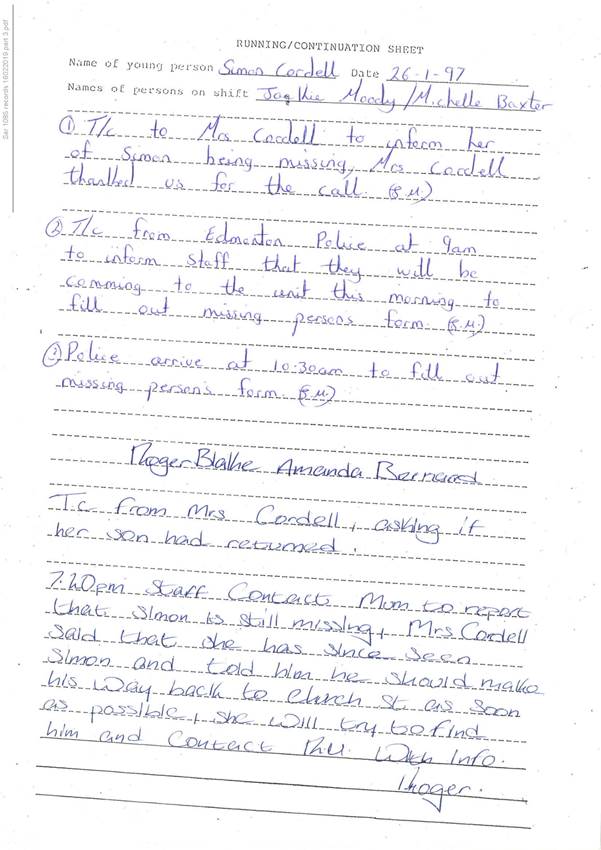 Sar 1085 records 16022019 part 3.pdf
RUNNING/CONTINUATION SHEET
Name of young person Simon Cordell Date 26-1-97
Names of persons on shift Moody / Michelle Baxter
① T/c to Mrs Cordell to inform her
of Simon being missing, Mrs Cordell
thanked us for the call. (J.M.)
② T/c from Edmonton Police at 9am
to inform staff that they will be
comming to the unit this morning to
fill out missing persons form. (J.M.)
③ Police arrive at 10:30am to fill out
missing persons form. (J.M.)
Blake Amanda Bernard
T.c from Mrs Cordell, asking if
her son had returned.
7.20pm Staff Contacts Mum to report
that Simon is still missing, Mrs Cordell
said that she has since seen
Simon and told him he should make
his way back to Church St as soon
as possible, she will try to find
him and contact With info.